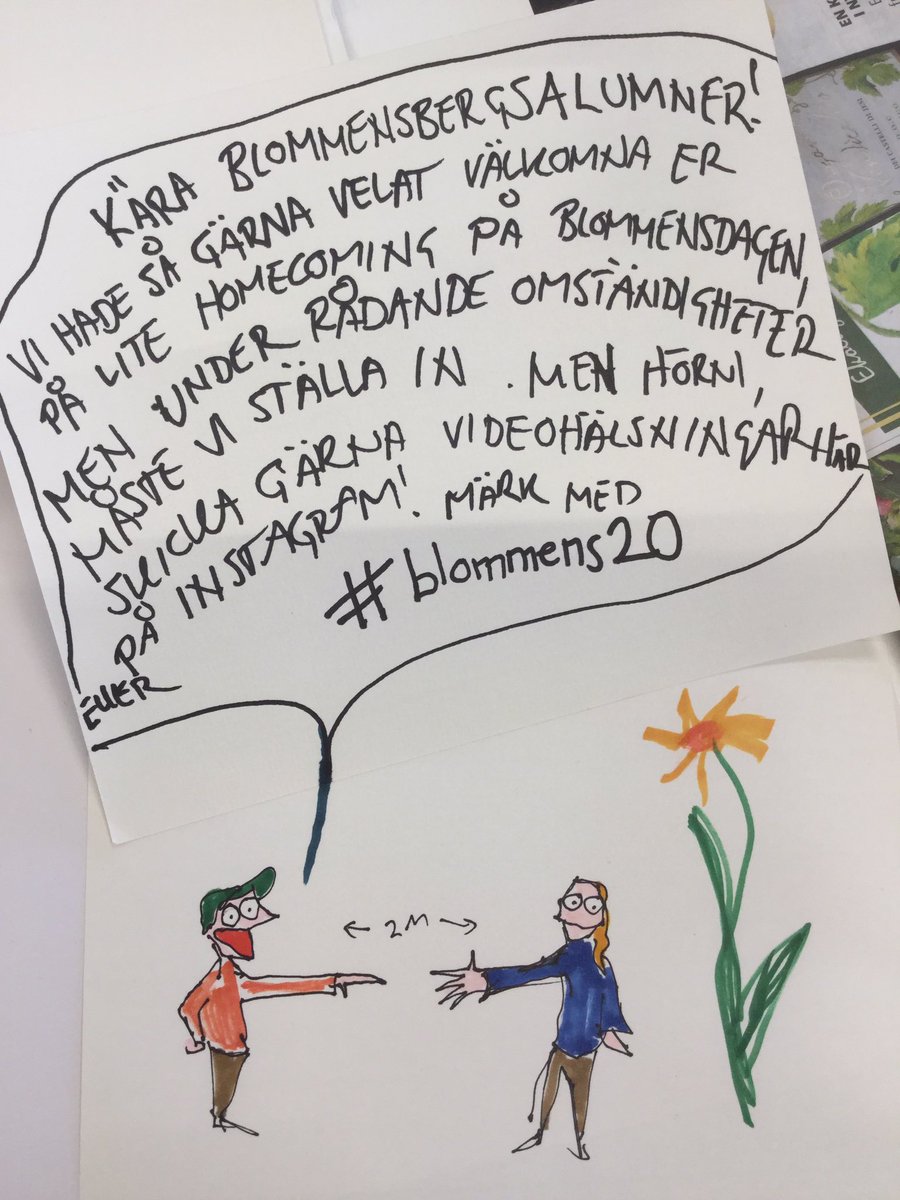 KÄRA BLOMMENSBERGSALUMNER!
VI HADE SÅ GÄRNA VELAT VÄLKOMNA ER
PÅ LITE HOMECOMING PÅ BLOMMENSDAGEN,
MEN UNDER RÅDANDE OMSTÄNDIGHETER
MÅSTE VI STÄLLA IN. MEN HÖRNI,
SKICKA GÄRNA VIDEOHÄLSNINGAR HÄR
ELLER PÅ INSTAGRAM! MÄRK MED
#blommens20
← 2M →